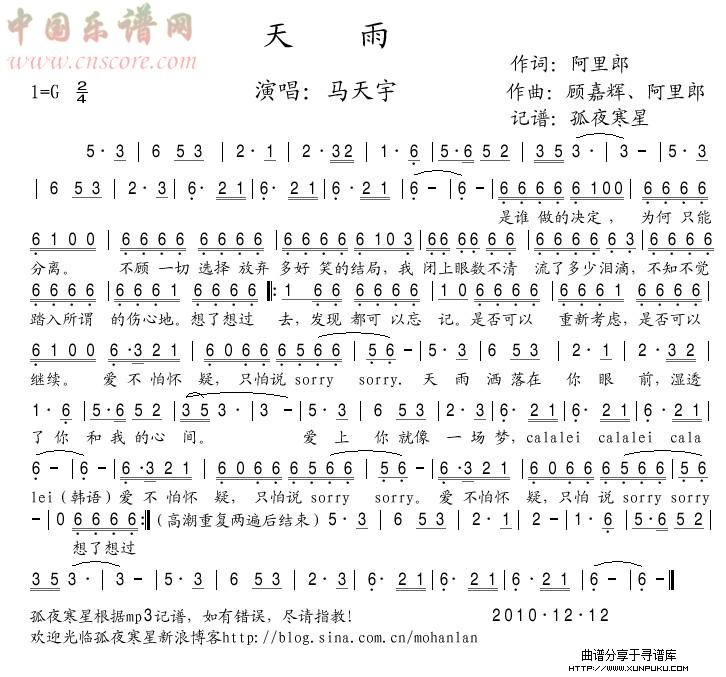 中国乐谱网
www.cnscore.com
天 雨
作词：阿里郎
1=G 2/4 演唱：马天宇 作曲：顾嘉辉、阿里郎
记谱：孤夜寒星
5·3 | 6 53 | 2·1 | 2·32 | 1·6 | 5·6 52 | 35 3· | 3 - | 5·3 |
| 6 53 | 2·3 | 6·21 | 6·21 | 6·21 | 6 - | 6 - | 6666 6100 | 6666
是谁 做的决定， 为何 只能
6100 | 6666 6666 | 6666 6103 | 66 666 | 6666 63 | 6666 6666
分离。 不顾 一切 选择 放弃 多好 笑的结局，我 闭上眼数不清 流了多少泪滴，不知不觉
6666 6666 |: 1 66 6666 | 10 6666 | 6666 6666
踏入所谓 的伤心地。想了想过 去，发现 都可 以忘 记。是否可以 重新考虑，是否可以
6100 | 6·321 | 6066 6566 | 56 - | 5·3 | 6 53 | 2·1 | 2·32
继续。 爱 不 怕怀 疑，只怕说 sorry sorry. 天 雨 洒 落在 你 眼 前，湿透
1·6 | 5·6 52 | 35 3· | 3 - | 5·3 | 6 53 | 2·3 | 6·21 | 6·21 | 6·21
了 你 和 我的 心 间。 爱 上 你 就像 一 场 梦，calalei calalei cala
6 - | 6 - | 6·321 | 6066 6566 | 56 - | 6·321 | 6066 6566 | 56
lei（韩语）爱 不 怕怀 疑，只怕说 sorry sorry。爱 不怕怀 疑，只怕 说 sorry sorry
- | 0 6666 :‖（高潮重复两遍后结束）5·3 | 6 53 | 2·1 | 2·32 | 1·6 | 5·6 52 |
想了想过
35 3· | 3 - | 5·3 | 6 53 | 2·3 | 6·21 | 6·21 | 6·21 | 6 - | 6 - ‖
孤夜寒星根据mp3记谱，如有错误，尽请指教！ 2010·12·12
欢迎光临孤夜寒星新浪博客http://blog.sina.com.cn/mohanlan
曲谱分享于寻谱库
HTTP://WWW.XUNPUKU.COM